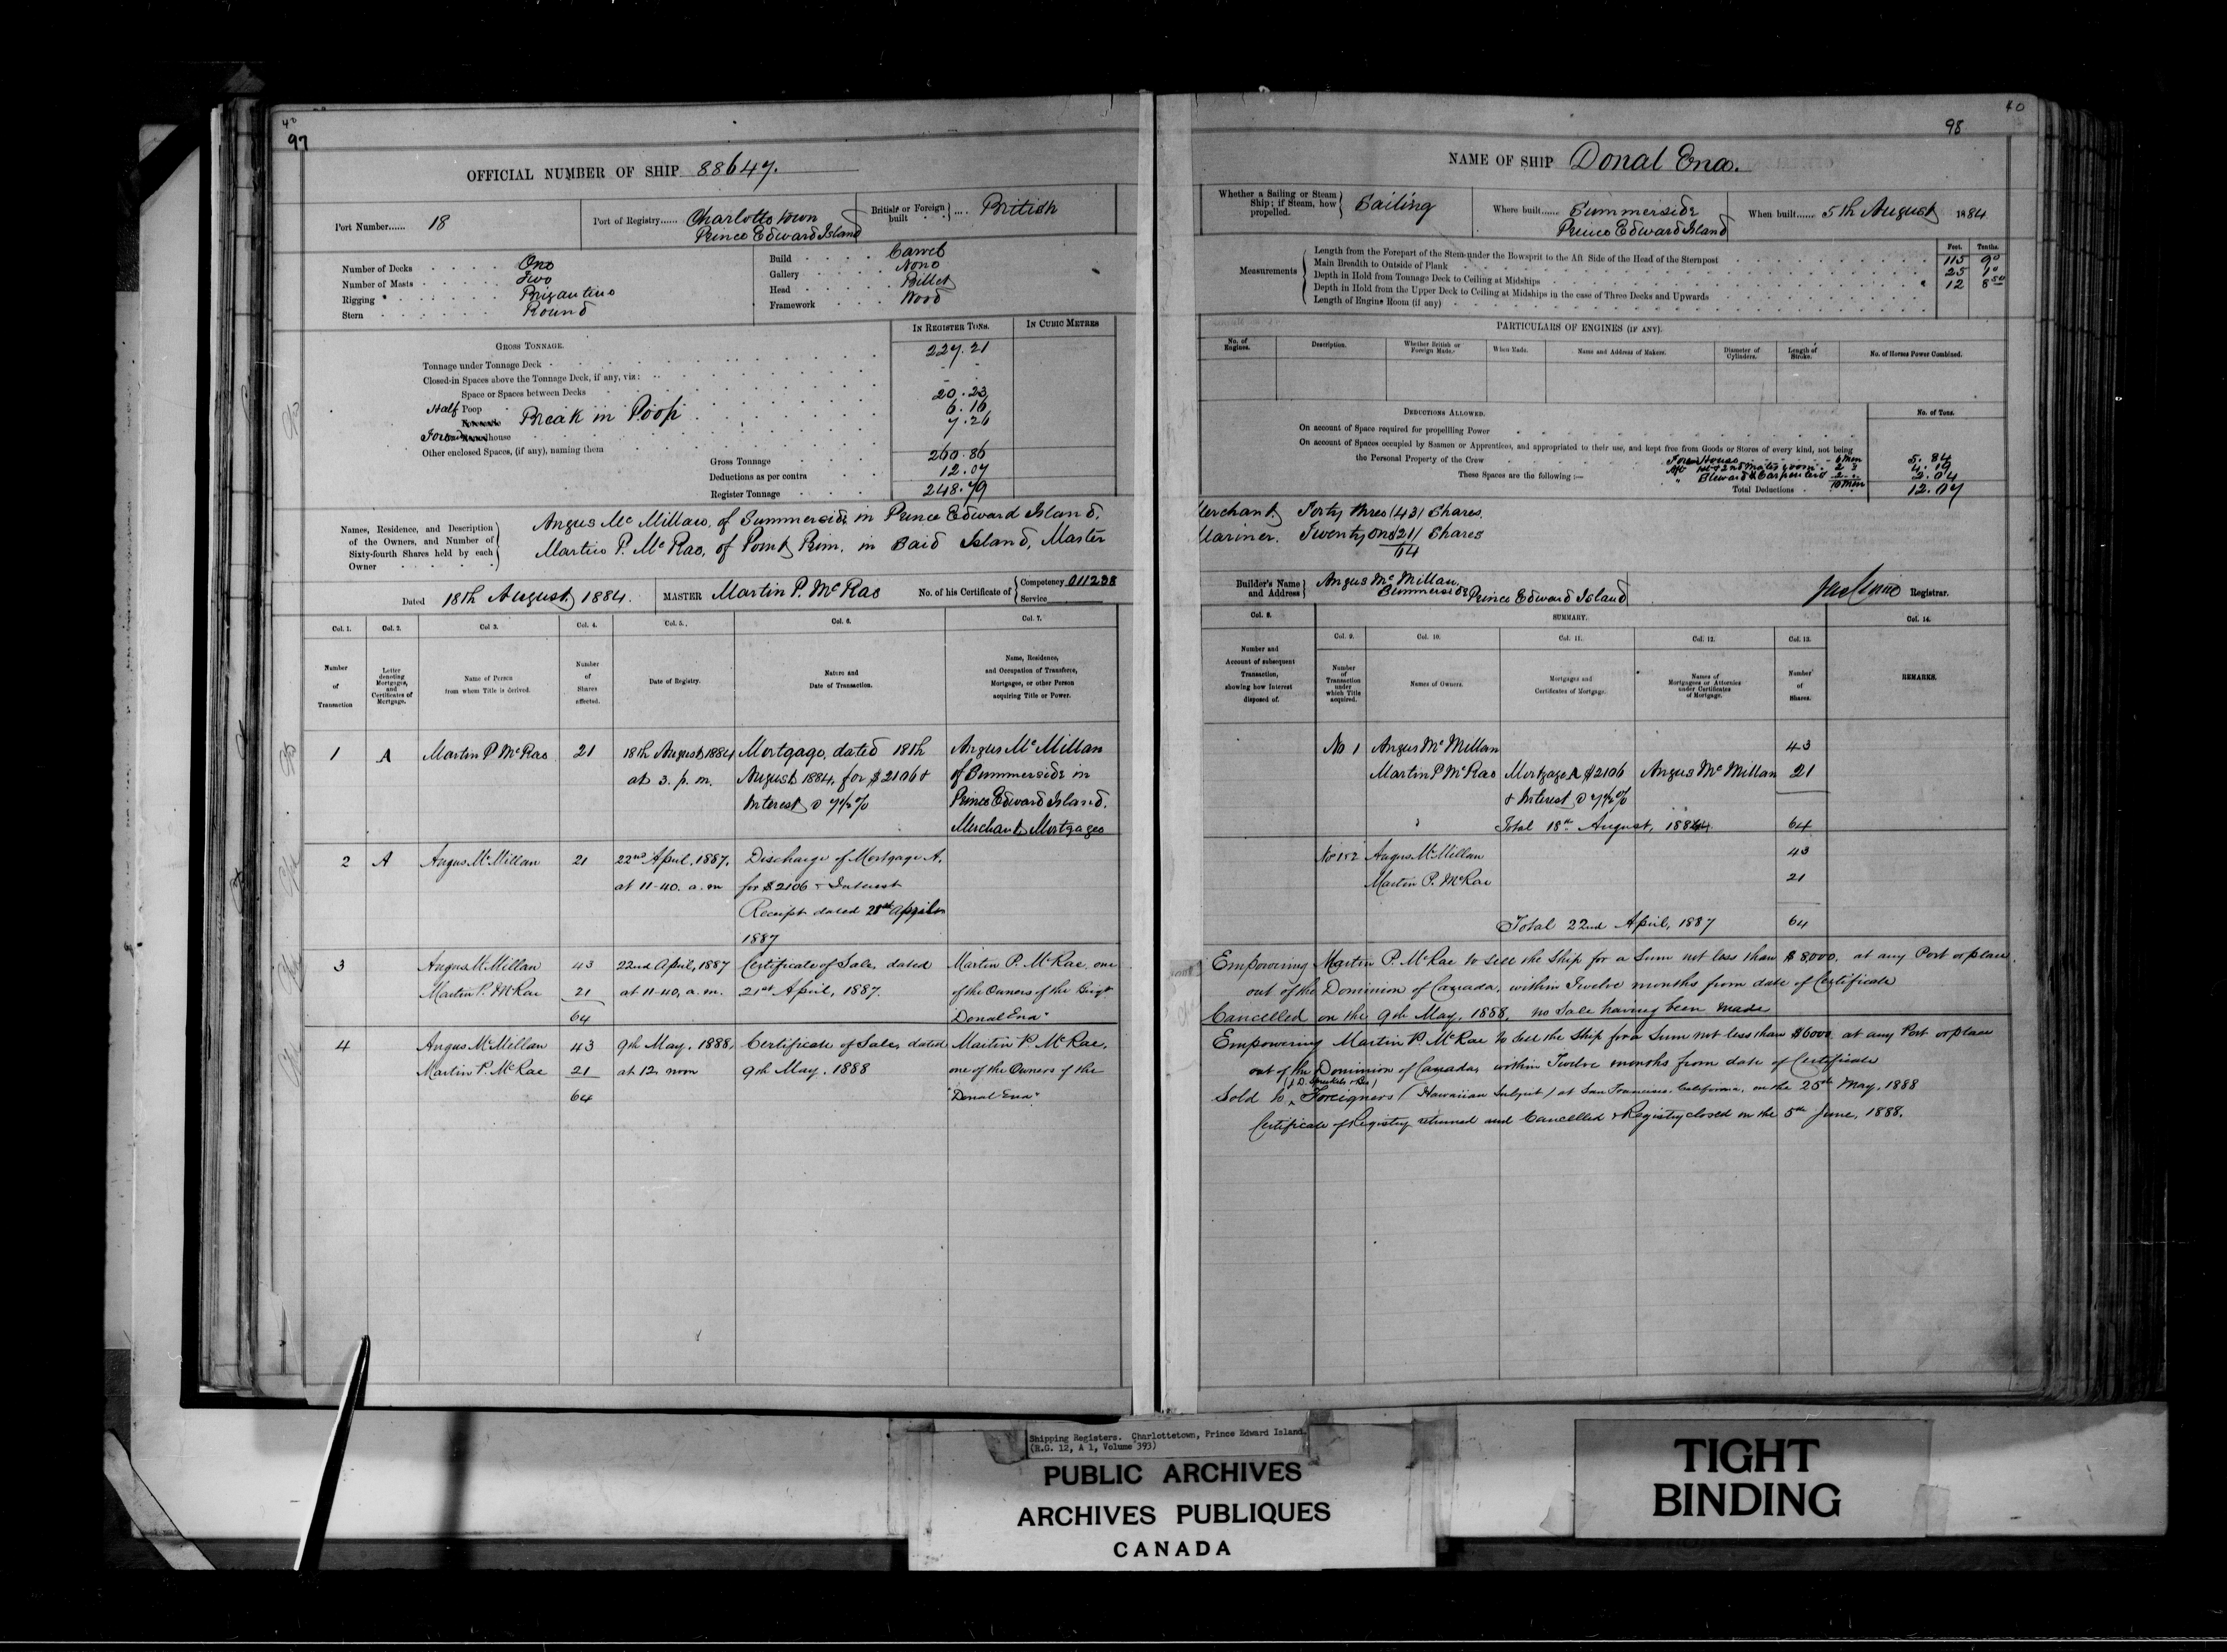 40
97
OFFICIAL NUMBER OF SHIP 88647.
Port Number...... 18
Port of Registry...... Charlottetown
Prince Edward Island
British or Foreign built .... British
Number of Decks One
Number of Masts Two
Rigging Brigantine
Stern Round
Build Carvel
Gallery None
Head Billet
Framework Wood
GROSS TONNAGE.
IN REGISTER TONS.
IN CUBIC METRES
Tonnage under Tonnage Deck 227.21
Closed-in Spaces above the Tonnage Deck, if any, viz:
Space or Spaces between Decks
Half Poop 20.23
Break in Poop 6.16
house 7.26
Other enclosed Spaces, (if any), naming them
Gross Tonnage 260.86
Deductions as per contra 12.07
Register Tonnage 248.79
Names, Residence, and Description
of the Owners, and Number of
Sixty-fourth Shares held by each
Owner
Angus McMillan, of Summerside in Prince Edward Island,
Martin P. McRae, of Point Prim, in Said Island, Master
Dated 18th August, 1884.
MASTER Martin P. McRae
No. of his Certificate of
Competency 011238
Service
Col. 1.
Col. 2.
Col 3.
Col. 4.
Col. 5.
Col. 6.
Col. 7.
Number of Transaction
Letter denoting Mortgages, and Certificates of Mortgage.
Name of Person from whom Title is derived.
Number of Shares affected.
Date of Registry.
Nature and Date of Transaction.
Name, Residence, and Occupation of Transferee, Mortgagee, or other Person acquiring Title or Power.
1 A Martin P McRae 21 18th August 1884 Mortgage, dated 18th Angus McMillan
at 3. p.m. August 1884, for $2106 & of Summerside in
Interest @ 7½% Prince Edward Island,
Merchant Mortgagee
2 A Angus McMillan 21 22nd April, 1887, Discharge of Mortgage A,
at 11-40. a.m for $2106 + Interest
Receipt dated April
1887
3 Angus McMillan 43 22nd April, 1887 Certificate of Sale, dated Martin P. McRae, one
Martin P. McRae 21 at 11-40, a.m. 21st April, 1887. of the Owners of the Brigt
64 Donal Ena"
4 Angus McMillan 43 9th May, 1888, Certificate of Sale, dated Martin P. McRae,
Martin P. McRae 21 at 12, noon 9th May, 1888 one of the Owners of the
64 "Donal Ena"
40
98
NAME OF SHIP Donal Ena.
Whether a Sailing or Steam Ship; if Steam, how propelled. Sailing
Where built...... Summerside
Prince Edward Island
When built...... 5th August 1884
Feet.
Tenths.
Measurements
Length from the Forepart of the Stem under the Bowsprit to the Aft Side of the Head of the Sternpost 115 90
Main Breadth to Outside of Plank 25 10
Depth in Hold from Tonnage Deck to Ceiling at Midships 12 850
Depth in Hold from the Upper Deck to Ceiling at Midships in the case of Three Decks and Upwards
Length of Engine Room (if any)
PARTICULARS OF ENGINES (IF ANY).
No. of Engines.
Description.
Whether British or Foreign Made.
When Made.
Name and Address of Makers.
Diameter of Cylinders.
Length of Stroke.
No. of Horses Power Combined.
DEDUCTIONS ALLOWED.
No. of Tons.
On account of Space required for propelling Power
On account of Spaces occupied by Seamen or Apprentices, and appropriated to their use, and kept free from Goods or Stores of every kind, not being
the Personal Property of the Crew
These Spaces are the following :—
House 6 Men 5.84
Aft 1st & 2nd Mates room 2 " 4.19
" Steward & Carpenters 2 " 2.04
10 Men
Total Deductions 12.07
Merchant, Forty three (43) Shares.
Mariner. Twenty one (21) Shares
64
Builder's Name and Address
Angus McMillan,
Summerside, Prince Edward Island
Registrar.
Col. 8.
SUMMARY.
Col. 9.
Col. 10.
Col. 11.
Col. 12.
Col. 13.
Col. 14.
Number and Account of subsequent Transaction, showing how Interest disposed of.
Number of Transaction under which Title acquired.
Names of Owners.
Mortgages and Certificates of Mortgage.
Names of Mortgagees or Attornies under Certificates of Mortgage.
Number of Shares.
REMARKS.
No 1 Angus McMillan 43
Martin P McRae Mortgage A $2106 Angus McMillan 21
& Interest @ 7½%
Total 18th August, 1884 64
No 1&2 Angus McMillan 43
Martin P. McRae 21
Total 22nd April, 1887 64
Empowering Martin P. McRae to sell the Ship for a Sum not less than $8000, at any Port or place
out of the Dominion of Canada, within Twelve months from date of Certificate
Cancelled on the 9th May, 1888, no Sale having been made
Empowering Martin P. McRae to sell the Ship for a Sum not less than $6000 at any Port or place
out of the Dominion of Canada, within Twelve months from date of Certificate
(J. D. Spreckels & Bros)
Sold to Foreigners (Hawaiian Subject) at San Francisco, California, on the 25th May, 1888
Certificate of Registry returned and Cancelled & Registry closed on the 5th June, 1888.
Shipping Registers. Charlottetown, Prince Edward Island.
(R.G. 12, A 1, Volume 393)
PUBLIC ARCHIVES
ARCHIVES PUBLIQUES
CANADA
TIGHT
BINDING